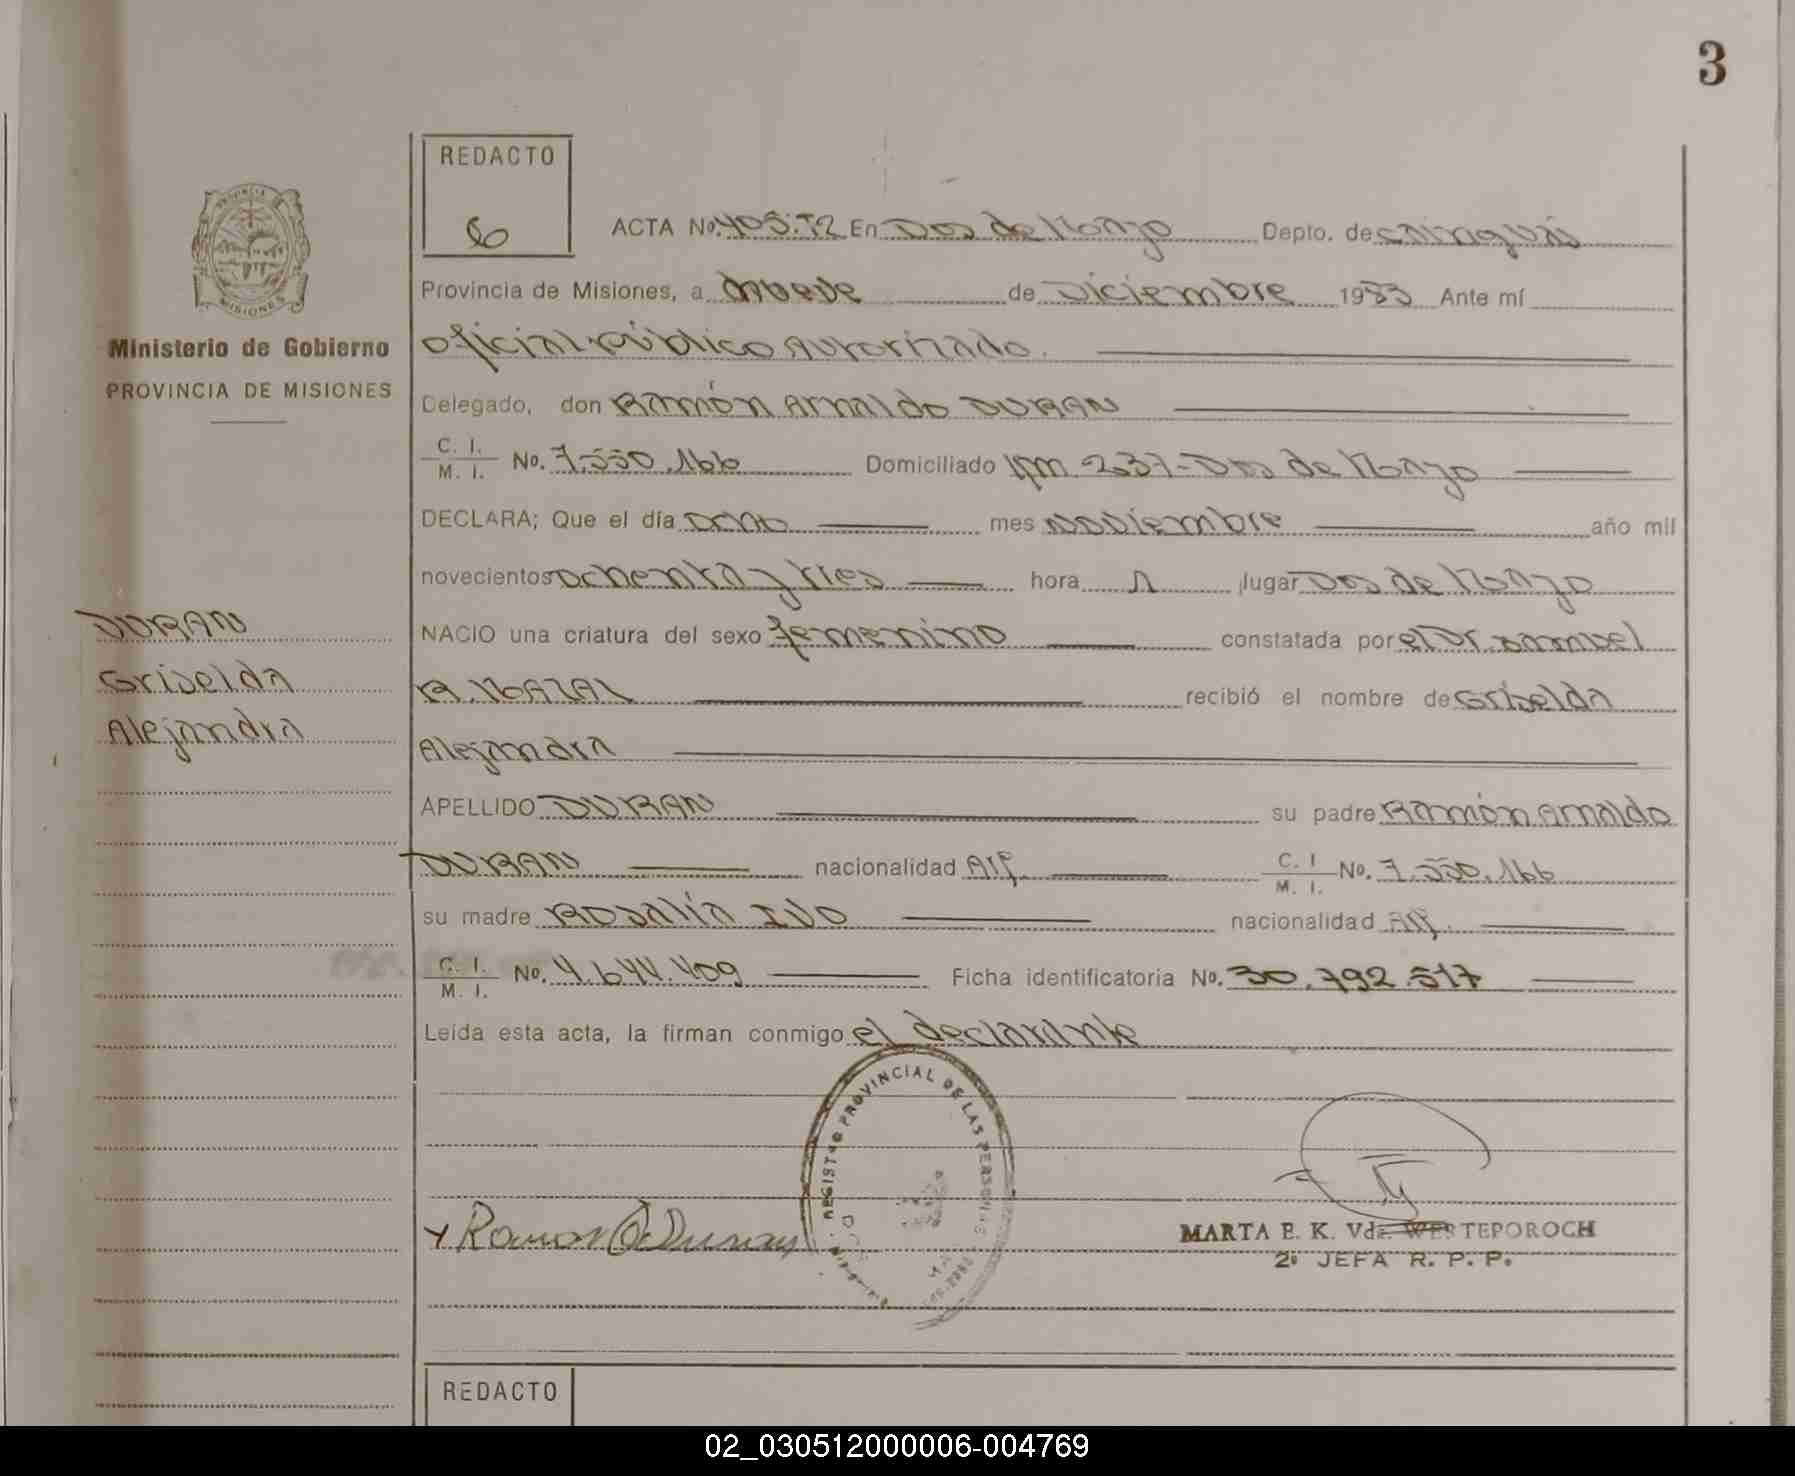 3
REDACTO
6
ACTA No. 405.T2 En Dos de Mayo Depto. de Cainguás
Provincia de Misiones, a nueve de Diciembre 1983 Ante mí
oficial público autorizado.
Delegado, don Ramón Arnaldo DURAN
C. I. / M. I. No. 7.550.166 Domiciliado Km. 237-Dos de Mayo
DECLARA; Que el día ocho mes noviembre año mil
novecientos ochenta y tres hora 1 lugar Dos de Mayo
NACIO una criatura del sexo femenino constatada por el Dr. Samuel
R. MAZAL recibió el nombre de Griselda
Alejandra
APELLIDO DURAN su padre Ramón Arnaldo
DURAN nacionalidad Arg. C. I / M. I. No. 7.550.166
su madre Rosalía IVO nacionalidad Arg.
C. I. / M. I. No. 4.644.409 Ficha identificatoria No. 30.792.517
Leída esta acta, la firman conmigo el declarante
PROVINCIA
MISIONES
Ministerio de Gobierno
PROVINCIA DE MISIONES
DURAN
Griselda
Alejandra
REGISTRO PROVINCIAL DE LAS PERSONAS
Ramon A Duran
MARTA E. K. Vda. WESTEPOROCH
2º JEFA R. P. P.
REDACTO
02_030512000006-004769